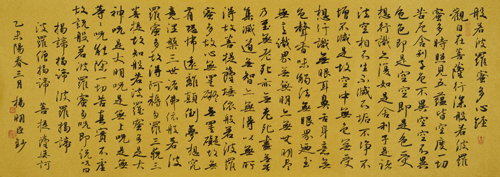 般若波羅蜜多心經
觀自在菩薩行深般若波羅
蜜多時照見五蘊皆空度一切
苦厄舍利子色不異空空不異
色色即是空空即是色受
想行識亦復如是舍利子是諸
法空相不生不滅不垢不淨不
增不減是故空中無色無受
想行識無眼耳鼻舌身意無
色聲香味觸法無眼界乃至
無意識界無無明亦無無明盡
乃至無老死亦無老死盡無苦
集滅道無智亦無得以無所
得故菩提薩埵依般若波羅
蜜多故心無罣礙無罣礙故無
有恐怖遠離顛倒夢想究
竟涅槃三世諸佛依般若波
羅蜜多故得阿耨多羅三藐三
菩提故知般若波羅蜜多是大
神咒是大明咒是無上咒是無等
等咒能除一切苦真實不虛
故說般若波羅蜜多咒即說咒曰
揭諦揭諦波羅揭諦
波羅僧揭諦菩提薩婆訶
乙未陽春三月楊明臣鈔